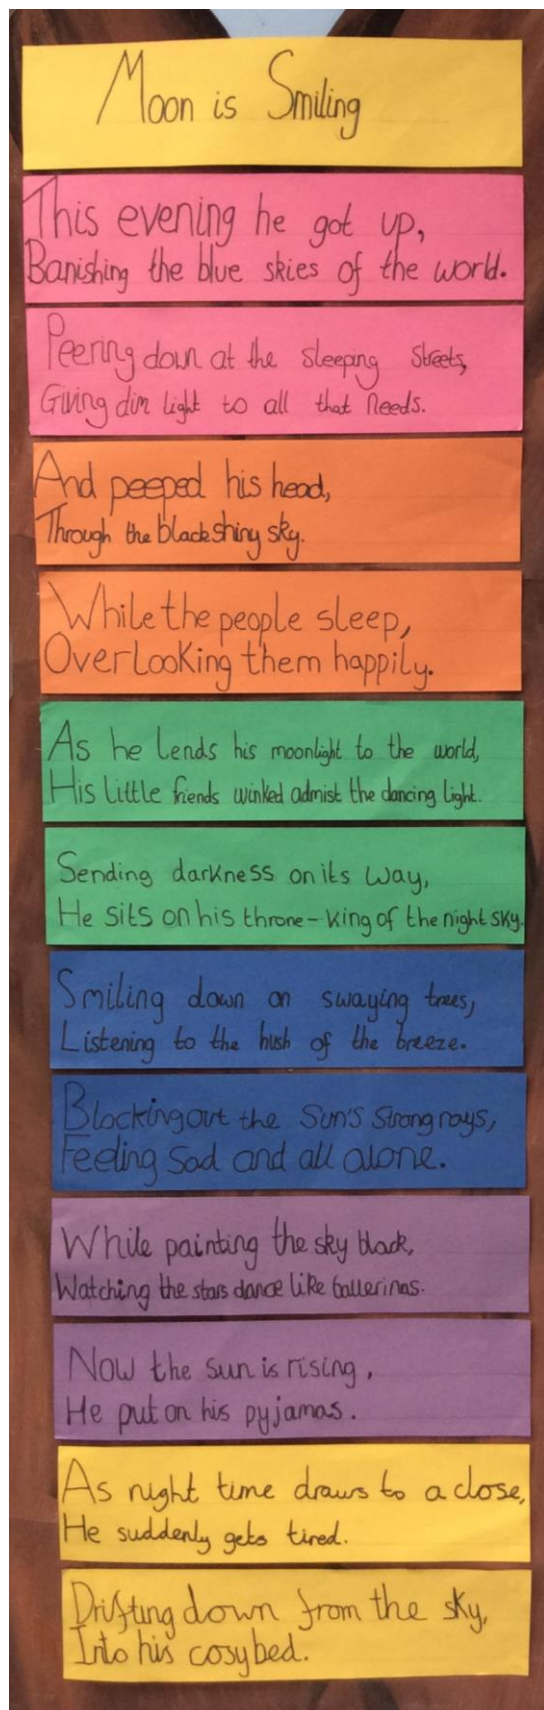 Moon is Smiling
This evening he got up,
Banishing the blue skies of the world.
Peering down at the sleeping streets,
Giving dim light to all that needs.
And peeped his head,
Through the black shiny sky.
While the people sleep,
Overlooking them happily.
As he lends his moonlight to the world,
His little friends winked admist the dancing light.
Sending darkness on its way,
He sits on his throne – king of the night sky.
Smiling down on swaying trees,
Listening to the hush of the breeze.
Blocking out the Sun's strong rays,
Feeling sad and all alone.
While painting the sky black,
Watching the stars dance like ballerinas.
Now the sun is rising,
He put on his pyjamas.
As night time draws to a close,
He suddenly gets tired.
Drifting down from the sky,
Into his cosy bed.